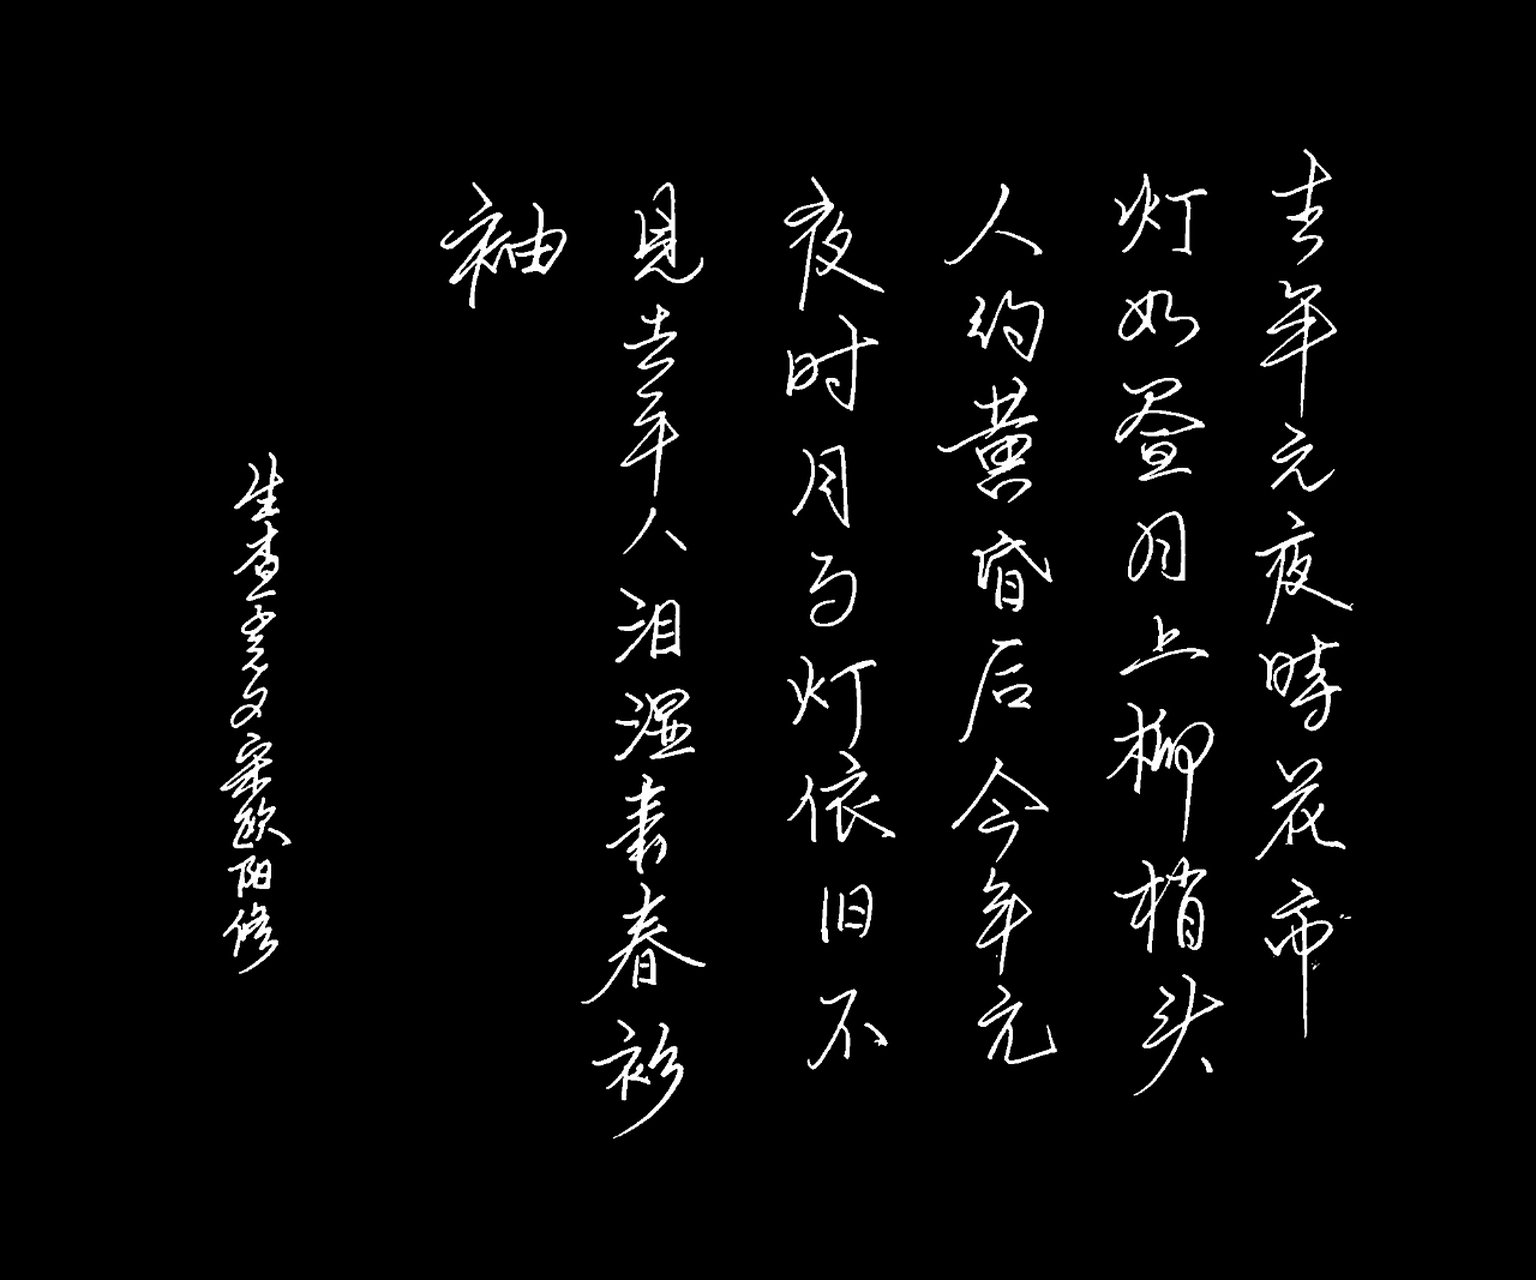 去年元夜時花市
灯如昼月上柳梢头
人约黄昏后今年元
夜时月与灯依旧不
見去年人泪湿春衫
袖
生查子元夕宋欧阳修